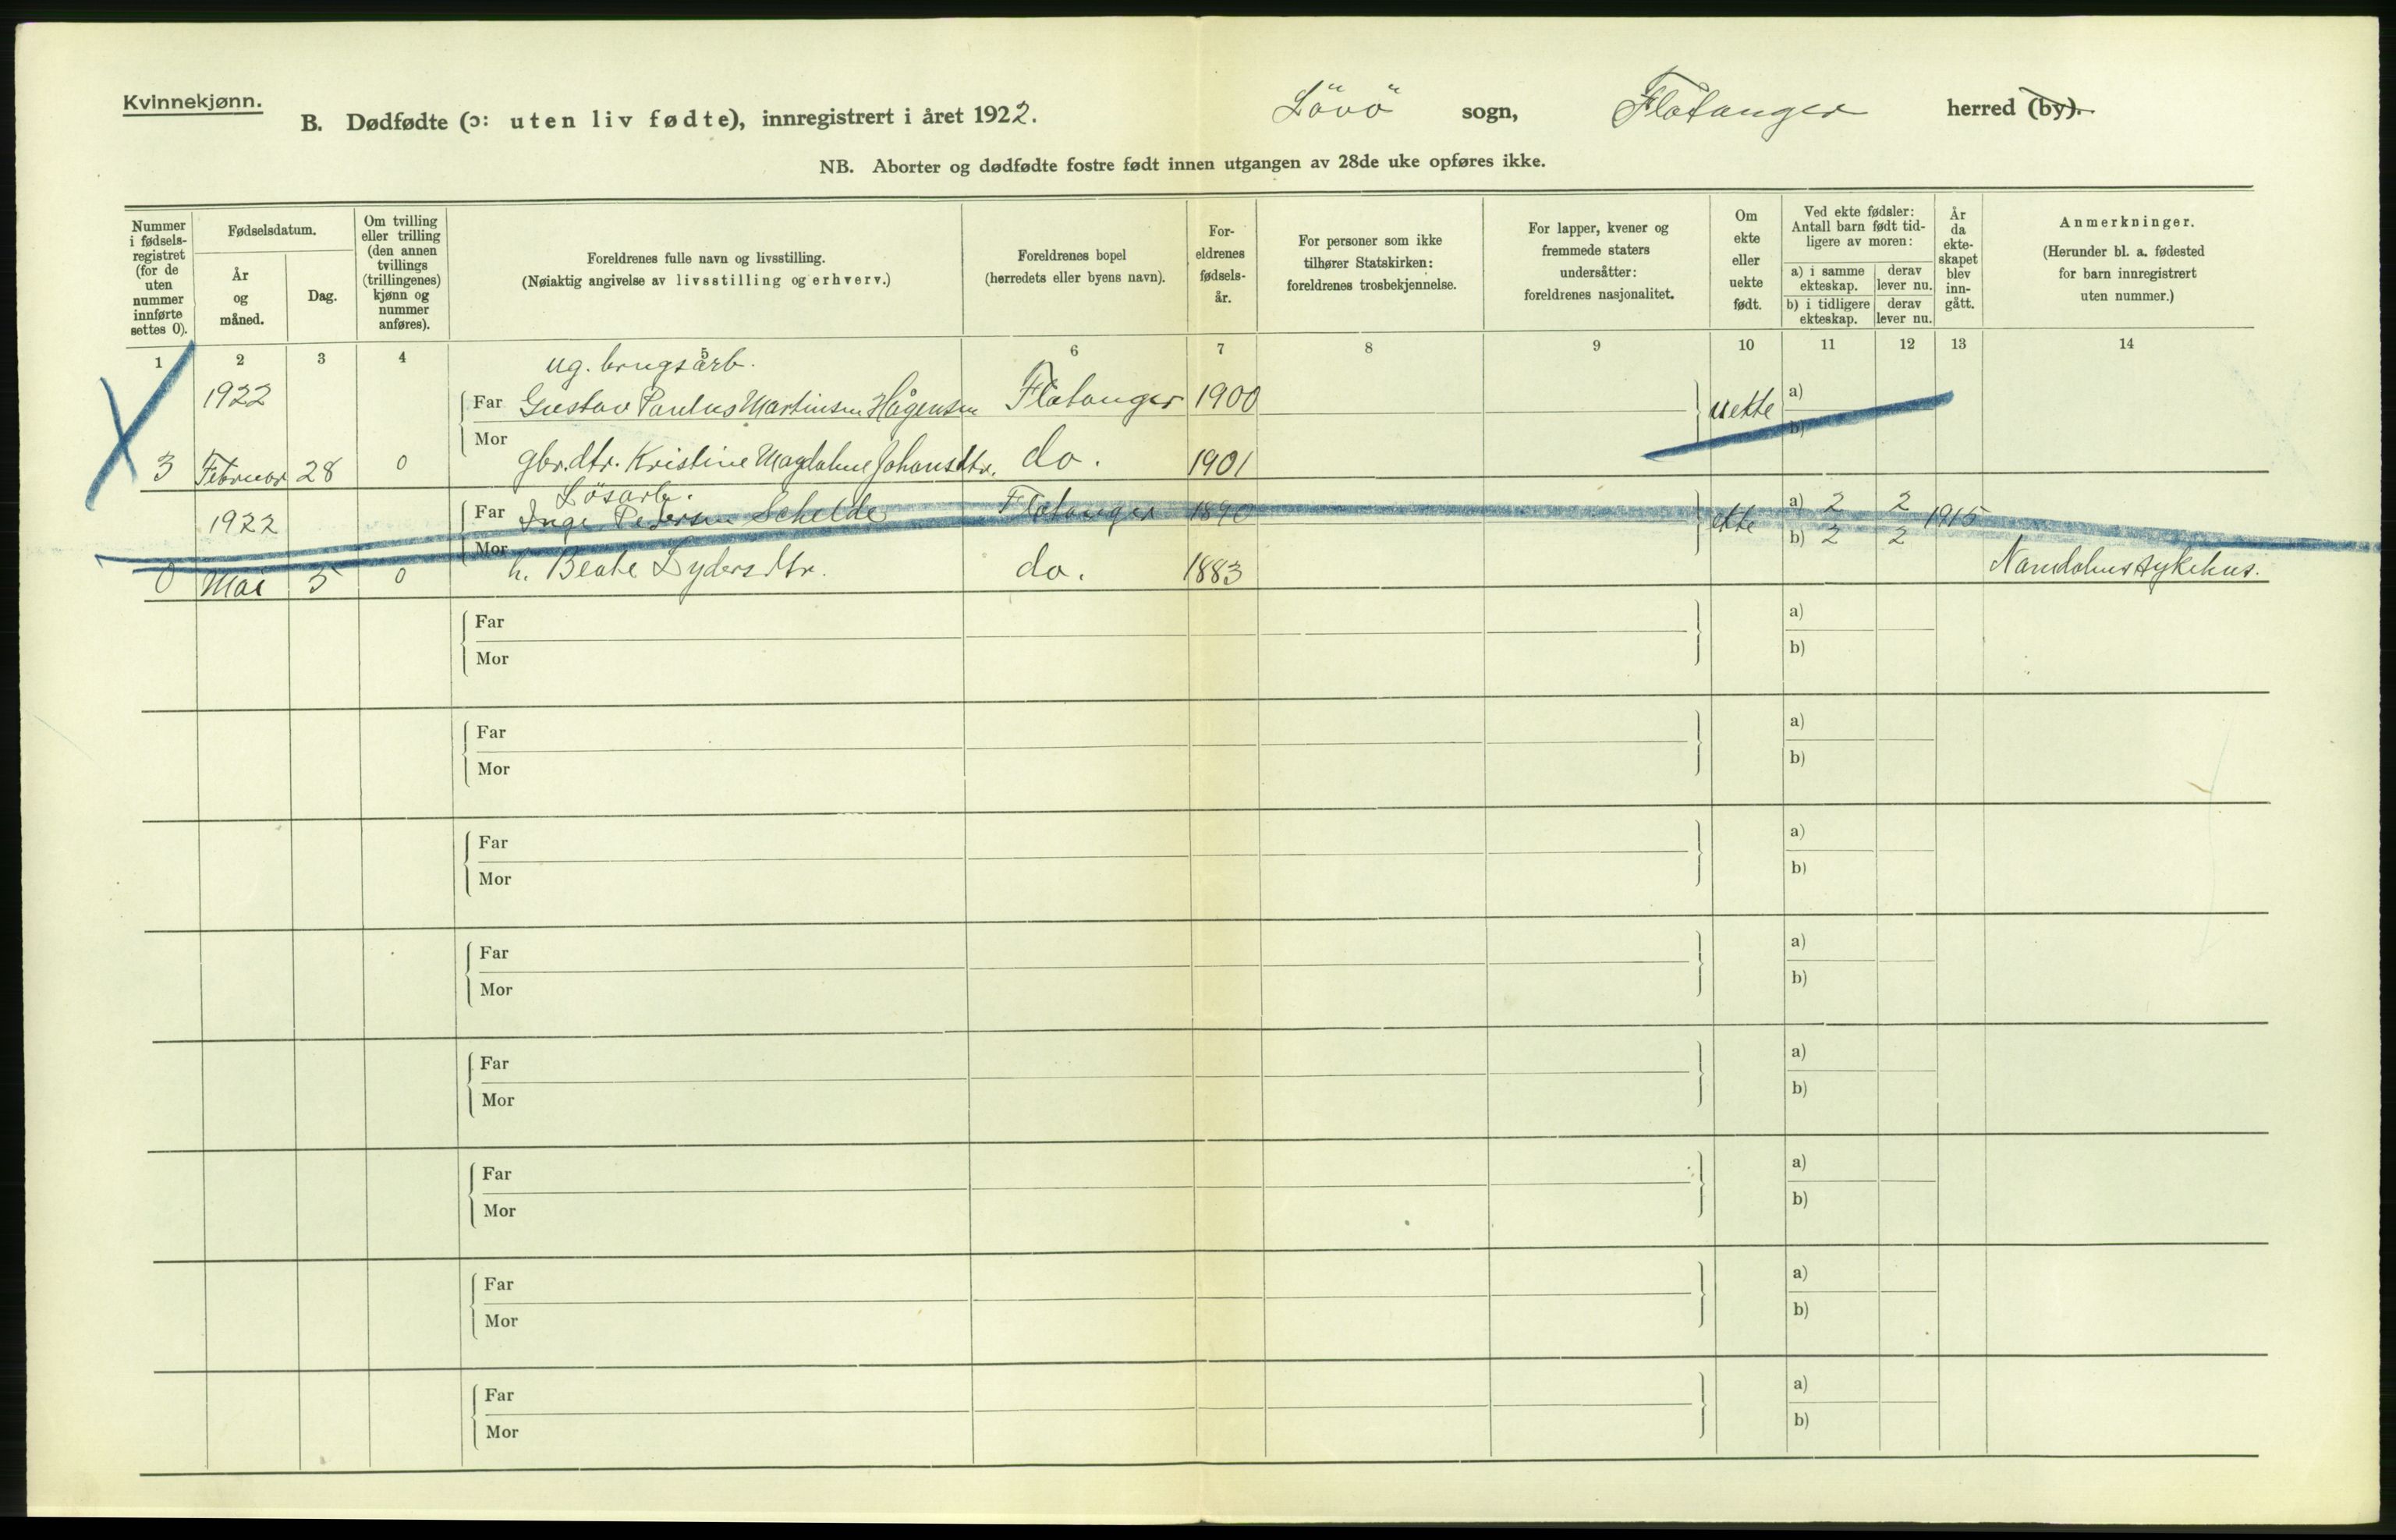 Kvinnekjønn.
B. Dødfødte (ɔ: uten liv fødte), innregistrert i året 1922.
Lövö sogn, Flatanger herred (by).
NB. Aborter og dødfødte fostre født innen utgangen av 28de uke opføres ikke.
Nummer
i fødsels-
registret
(for de
uten
nummer
innførte
settes 0).
Fødselsdatum.
År
og
måned.
Dag.
Om tvilling
eller trilling
(den annen
tvillings
(trillingenes)
kjønn og
nummer
anføres).
Foreldrenes fulle navn og livsstilling.
(Nøiaktig angivelse av livsstilling og erhverv.)
Foreldrenes bopel
(herredets eller byens navn).
For-
eldrenes
fødsels-
år.
For personer som ikke
tilhører Statskirken:
foreldrenes trosbekjennelse.
For lapper, kvener og
fremmede staters
undersåtter:
foreldrenes nasjonalitet.
Om
ekte
eller
uekte
født.
Ved ekte fødsler:
Antall barn født tid-
ligere av moren:
a) i samme
ekteskap.
derav
lever nu.
b) i tidligere
ekteskap.
derav
lever nu.
År
da
ekte-
skapet
blev
inn-
gått.
Anmerkninger.
(Herunder bl. a. fødested
for barn innregistrert
uten nummer.)
1 2 3 4 5 6 7 8 9 10 11 12 13 14
ug. brugsarb.
1922 Far Gustav Paulus Martinsen Hågensen Flatanger 1900 uekte a)
b)
3 Februar 28 0 Mor gbr.dtr. Kristine Magdalene Johansdtr. do. 1901
Lösarb.
1922 Far Inge Pedersen Schelde Flatanger 1890 ekte a) 2 2 1915
b) 2 2
0 Mai 5 0 Mor h. Beate Lydersdtr. do. 1883 Namdalens sykehus.
Far a)
Mor b)
Far a)
Mor b)
Far a)
Mor b)
Far a)
Mor b)
Far a)
Mor b)
Far a)
Mor b)
Far a)
Mor b)
Far a)
Mor b)